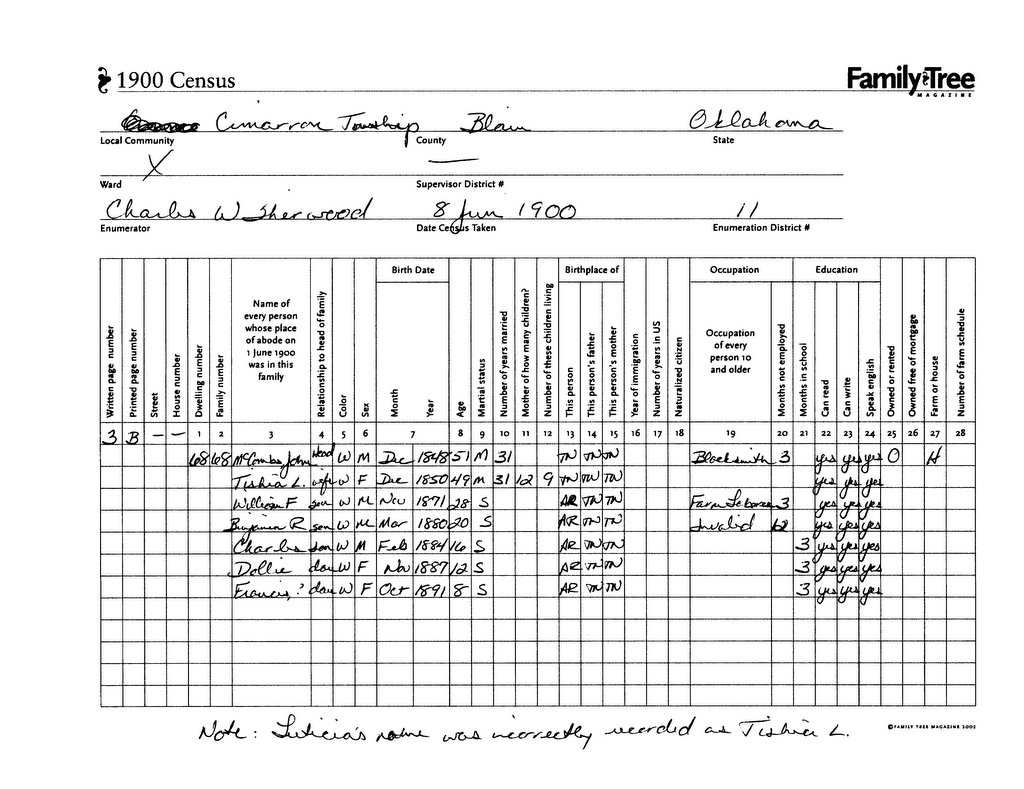 1900 Census
FamilyTree
MAGAZINE
Cimarron Township Blain Oklahoma
Local Community County State
X —
Ward Supervisor District #
Charles W Sherwood 8 Jun 1900 11
Enumerator Date Census Taken Enumeration District #
Birth Date Birthplace of Occupation Education
Written page number Printed page number Street House number Dwelling number Family number Name of every person whose place of abode on 1 June 1900 was in this family Relationship to head of family Color Sex Month Year Age Martial status Number of years married Mother of how many children? Number of these children living This person This person's father This person's mother Year of immigration Number of years in US Naturalized citizen Occupation of every person 10 and older Months not employed Months in school Can read Can write Speak english Owned or rented Owned free of mortgage Farm or house Number of farm schedule
3 B — — 1 2 3 4 5 6 7 8 9 10 11 12 13 14 15 16 17 18 19 20 21 22 23 24 25 26 27 28
68 68 McCombs John Head W M Dec 1848 51 M 31 TN TN TN Blacksmith 3 yes yes yes O H
Tishia L. wife W F Dec 1850 49 M 31 12 9 TN TN TN yes yes yes
William F son W M Nov 1871 28 S AR TN TN Farm Laborer 3 yes yes yes
Benjamin R son W M Mar 1880 20 S AR TN TN Invalid 12 yes yes yes
Charles son W M Feb 1884 16 S AR TN TN 3 yes yes yes
Dollie dau W F Nov 1887 12 S AR TN TN 3 yes yes yes
Francis ? dau W F Oct 1891 8 S AR TN TN 3 yes yes yes
Note: Luticia's name was incorrectly recorded as Tishia L.
© FAMILY TREE MAGAZINE 2002